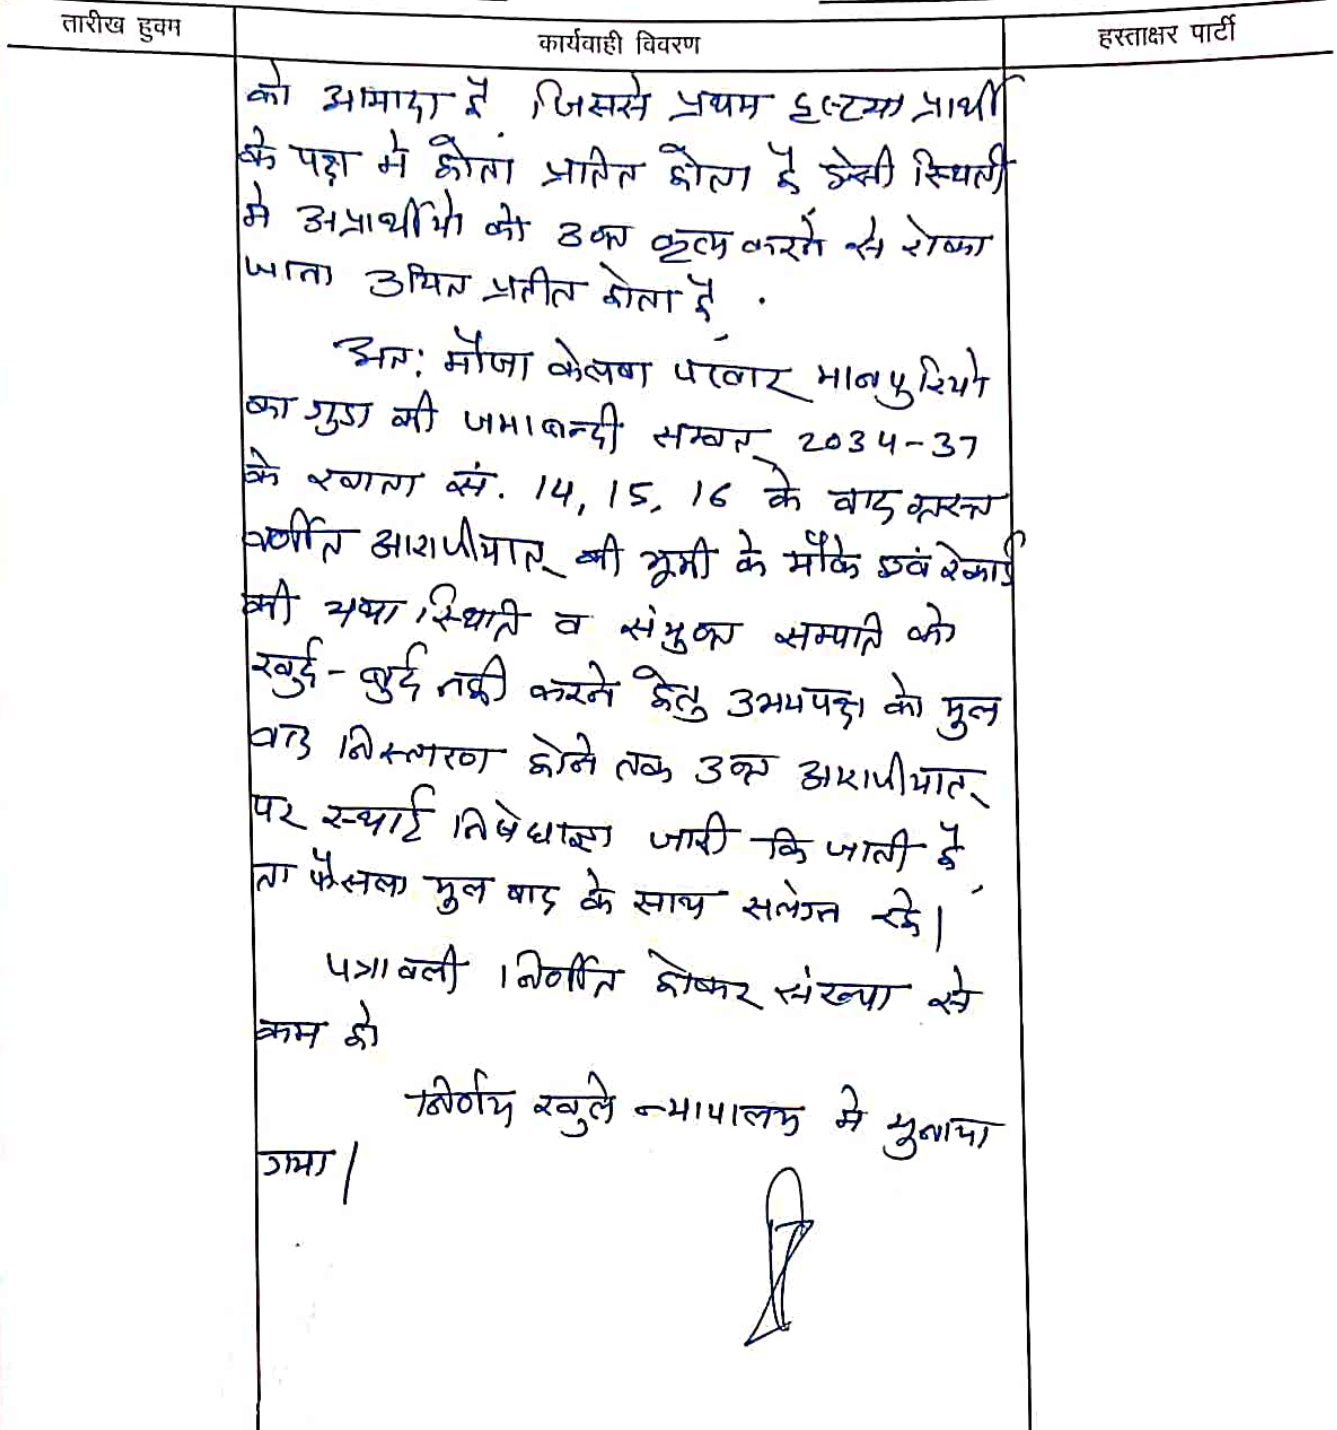 तारीख हुक्म
कार्यवाही विवरण
हस्ताक्षर पार्टी
को आमादा है जिससे प्रथम दृष्टया प्रार्थी
के पक्ष मे होता प्रतित होता है ऐसी स्थिती
मे अप्रार्थीयो को उक्त कृत्य करने से रोका
जाना उचित प्रतीत होता है .
अत: मौजा केलवा पटवार मानपुरियो
का गुडा की जमाबन्दी सम्वत् 2034-37
के खाता सं. 14, 15, 16 के वाद
वर्णीत आराजीयात् की भूमी के मौके एवं रेकार्ड
की यथा स्थिति व संयुक्त सम्पति को
खुर्द-बुर्द नही करने हेतु उभयपक्ष को मुल
वाद निस्तारण होने तक उक्त आराजीयात्
पर स्थाई निषेधाज्ञा जारी कि जाती है,
ता फैसला मुल वाद के साथ सलंग्न रहे।
पत्रावली निर्णीत होकर संख्या से
कम हो
निर्णय खुले न्यायालय मे सुनाया
गया।